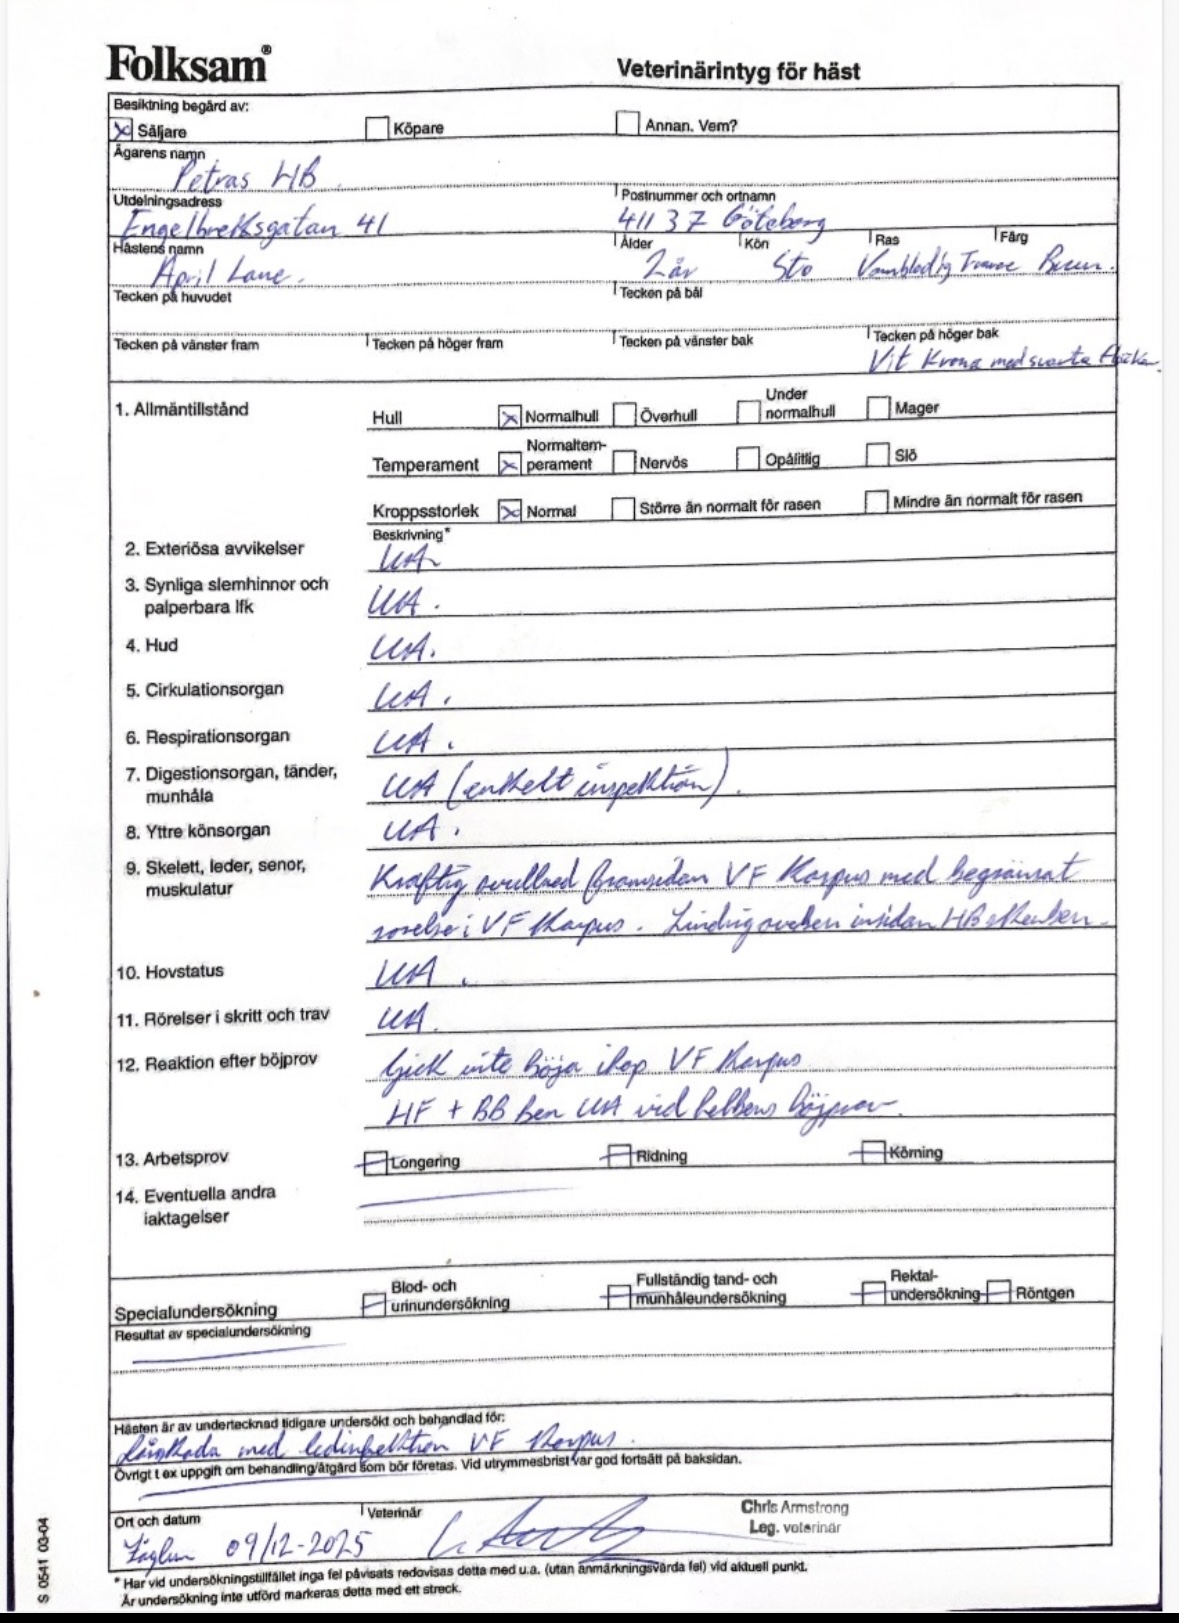 Folksam®
Veterinärintyg för häst
Besiktning begärd av:
Säljare Köpare Annan. Vem?
Ägarens namn
Petras HB
Utdelningsadress Postnummer och ortnamn
Engelbrektsgatan 41 411 37 Göteborg
Hästens namn Ålder Kön Ras Färg
April Lane. 2 år Sto Varmblodig Travare Brun.
Tecken på huvudet Tecken på bål
Tecken på vänster fram Tecken på höger fram Tecken på vänster bak Tecken på höger bak
Vit Krona med svarta fläckar.
1. Allmäntillstånd Hull Normalhull Överhull Under normalhull Mager
Temperament Normaltem-perament Nervös Opålitlig Slö
Kroppsstorlek Normal Större än normalt för rasen Mindre än normalt för rasen
Beskrivning*
2. Exteriösa avvikelser UA
3. Synliga slemhinnor och
palperbara lfk UA.
4. Hud UA.
5. Cirkulationsorgan UA.
6. Respirationsorgan UA.
7. Digestionsorgan, tänder,
munhåla UA (enkelt inspektion).
8. Yttre könsorgan UA.
9. Skelett, leder, senor, Kraftig svullnad framsidan VF Karpus med begränsat
muskulatur rörelse i VF Karpus. Lindrig insidan HB skenben.
10. Hovstatus UA.
11. Rörelser i skritt och trav UA.
12. Reaktion efter böjprov Gick inte böja ihop VF Karpus
HF + BB ben UA vid helbens böjprov.
13. Arbetsprov Longering Ridning Körning
14. Eventuella andra
iaktagelser
Specialundersökning Blod- och urinundersökning Fullständig tand- och munhåleundersökning Rektal-undersökning Röntgen
Resultat av specialundersökning
Hästen är av undertecknad tidigare undersökt och behandlad för:
Sårskada med ledinfektion VF Karpus.
Övrigt t ex uppgift om behandling/åtgärd som bör företas. Vid utrymmesbrist var god fortsätt på baksidan.
Ort och datum Veterinär Chris Armstrong
09/12-2025 Leg. veterinär
* Har vid undersökningstillfället inga fel påvisats redovisas detta med u.a. (utan anmärkningsvärda fel) vid aktuell punkt.
Är undersökning inte utförd markeras detta med ett streck.
S 0541 03-04